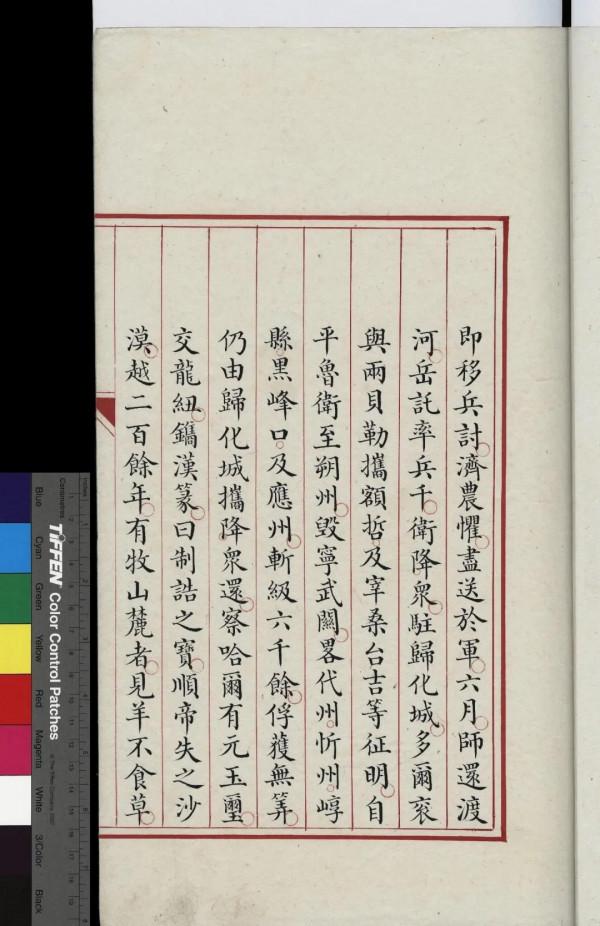 即移兵討濟農懼盡送於軍六月師還渡
河岳託率兵千衛降衆駐歸化城多爾衮
與兩貝勒攜額哲及宰桑台吉等征明自
平魯衛至朔州毀寧武關畧代州忻州崞
縣黒峰口及應州斬級六千餘俘獲無筭
仍由歸化城攜降衆還察哈爾有元玉璽
交龍紐鐫漢篆曰制誥之寶順帝失之沙
漠越二百餘年有牧山麓者見羊不食草
TIFFEN Color Control Patches
Blue
Cyan
Green
Yellow
Red
Magenta
White
3/Color
Black
Centimetres
Inches